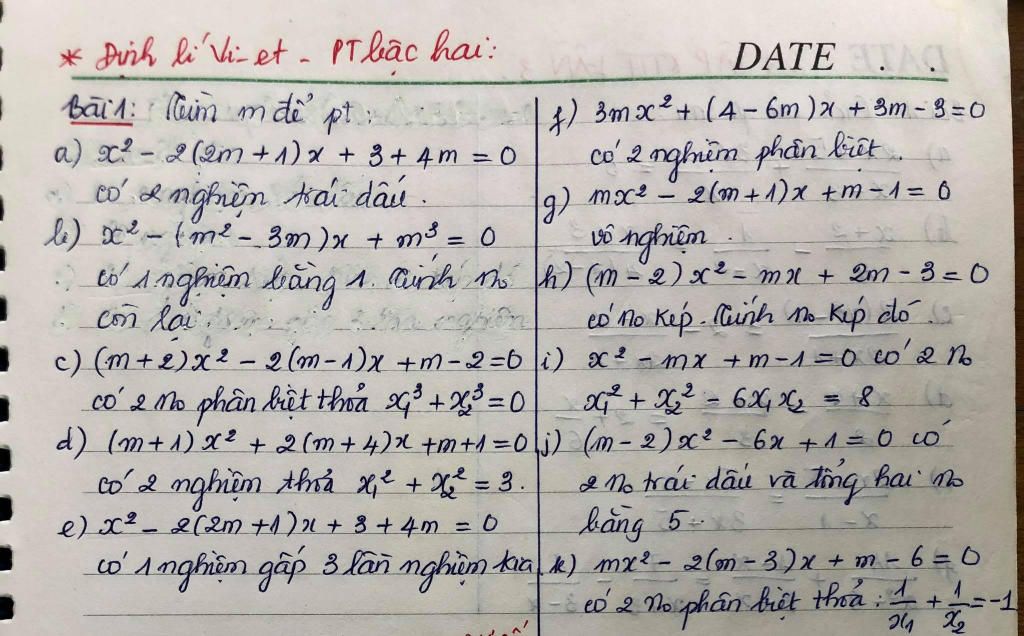 * Định lí Vi-et - PT bậc hai:
DATE . .
Bài 1: Tìm m để pt:
a) x² - 2(2m+1)x + 3 + 4m = 0
có 2 nghiệm trái dấu.
b) x² - (m² - 3m)x + m³ = 0
có 1 nghiệm bằng 1. Tính no
còn lại.
c) (m+2)x² - 2(m-1)x + m - 2 = 0
có 2 no phân biệt thoả x₁³ + x₂³ = 0
d) (m+1)x² + 2(m+4)x + m+1 = 0
có 2 nghiệm thoả x₁² + x₂² = 3.
e) x² - 2(2m+1)x + 3 + 4m = 0
có 1 nghiệm gấp 3 lần nghiệm kia
f) 3mx² + (4 - 6m)x + 3m - 3 = 0
có 2 nghiệm phân biệt.
g) mx² - 2(m+1)x + m - 1 = 0
vô nghiệm.
h) (m-2)x² - mx + 2m - 3 = 0
có no kép. Tính no kép đó.
i) x² - mx + m - 1 = 0 có 2 no
x₁² + x₂² - 6x₁x₂ = 8
j) (m-2)x² - 6x + 1 = 0 có
2 no trái dấu và tổng hai no
bằng 5.
k) mx² - 2(m-3)x + m - 6 = 0
có 2 no phân biệt thoả: 1/x₁ + 1/x₂ = -1